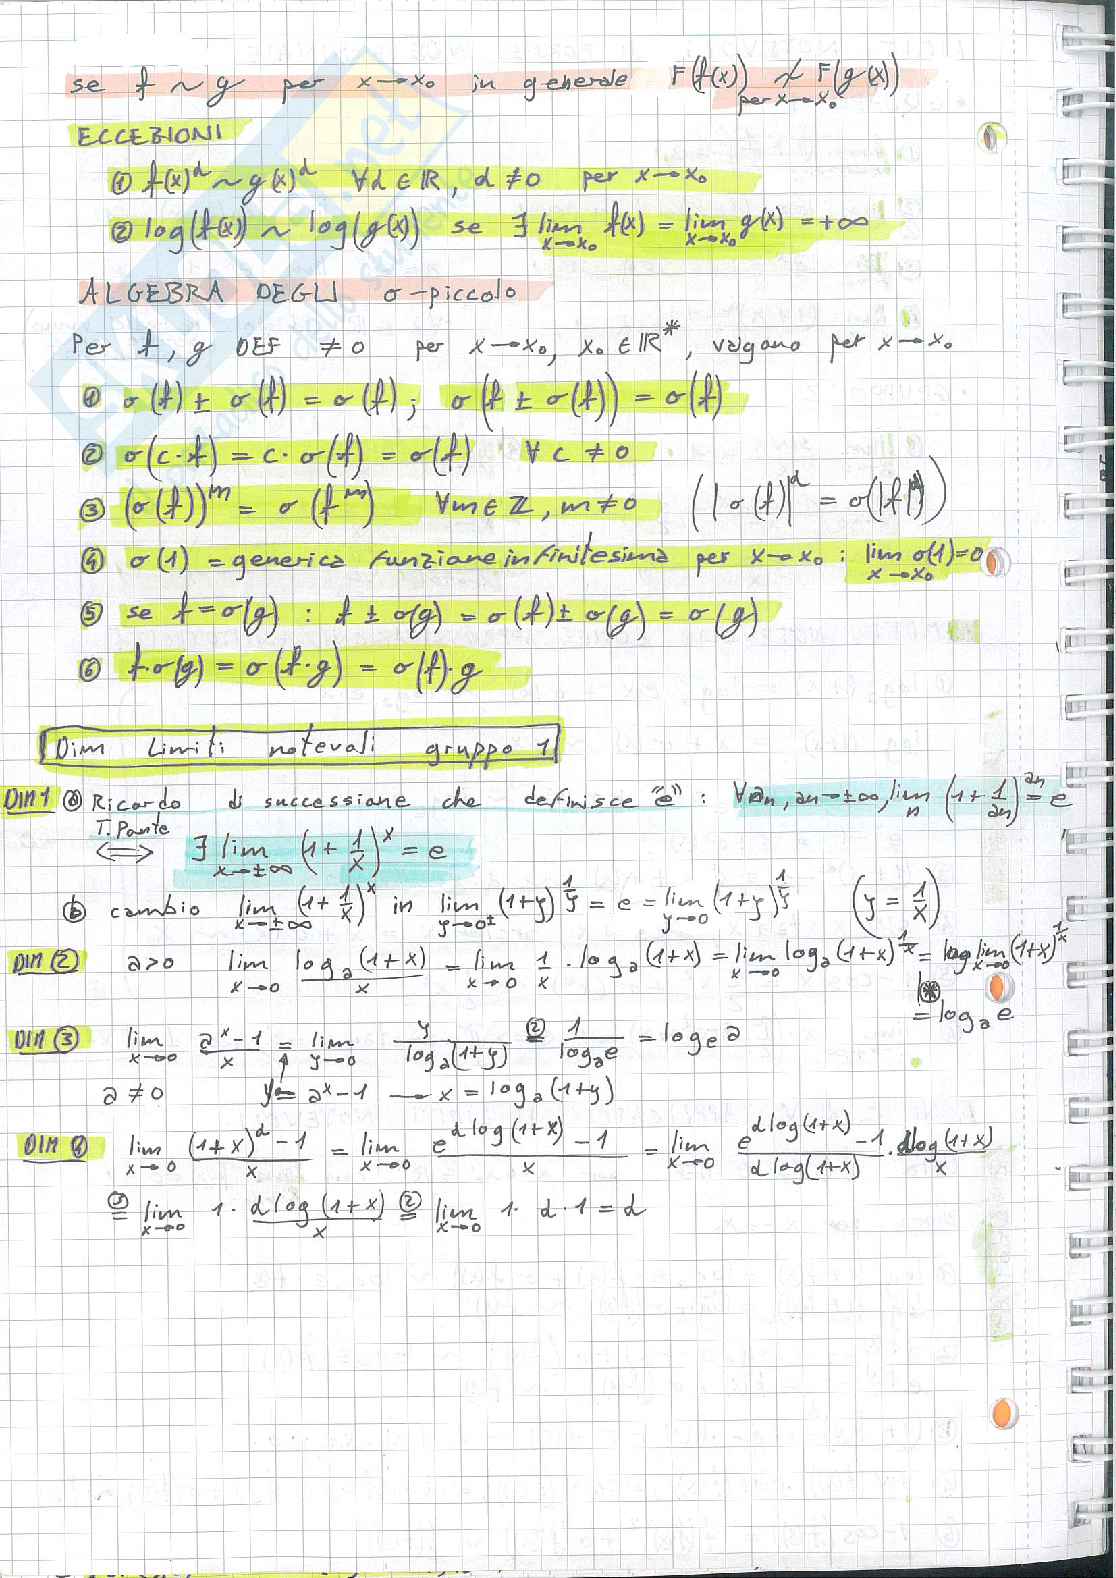 se f ~ g per x→x₀ in generale F(f(x)) ≁ F(g(x)) per x→x₀
ECCEZIONI
① f(x)^α ~ g(x)^α ∀α∈ℝ, α≠0 per x→x₀
② log(f(x)) ~ log(g(x)) se ∃ lim x→x₀ f(x) = lim x→x₀ g(x) = +∞
ALGEBRA DEGLI o-piccolo
Per f, g DEF ≠0 per x→x₀, x₀∈ℝ*, valgano per x→x₀
① o(f) ± o(f) = o(f); o(f ± o(f)) = o(f)
② o(c·f) = c·o(f) = o(f) ∀ c ≠ 0
③ (o(f))^m = o(f^m) ∀m∈ℤ, m≠0 (|o(f)|^α = o(|f|^α))
④ o(1) = generica funzione infinitesima per x→x₀ : lim x→x₀ o(1)=0
⑤ se f=o(g) : f ± o(g) = o(f) ± o(g) = o(g)
⑥ f·o(g) = o(f·g) = o(f)·g
Dim Limiti notevali gruppo 1
DIM 1 ⓐ Ricordo di successione che definisce "e" : ∀an, an→±∞, lim n (1+1/an)^an = e
T. Ponte
⟺ ∃ lim x→±∞ (1+1/x)^x = e
ⓑ cambio lim x→±∞ (1+1/x)^x in lim y→0± (1+y)^1/y = e = lim y→0 (1+y)^1/y (y=1/x)
DIM ② a>0 lim x→0 log_a(1+x)/x = lim x→0 1/x · log_a(1+x) = lim x→0 log_a(1+x)^1/x = log lim x→0 (1+x)^1/x
⊛ = log_a e
DIM ③ lim x→0 a^x-1/x = lim y→0 y/log_a(1+y) ②= 1/log_a e = log_e a
a≠0 y=a^x-1 → x=log_a(1+y)
DIM ④ lim x→0 (1+x)^α-1/x = lim x→0 e^αlog(1+x) -1/x = lim x→0 e^αlog(1+x) -1/αlog(1+x) · αlog(1+x)/x
③= lim x→0 1·αlog(1+x)/x ②= lim x→0 1·α·1=α